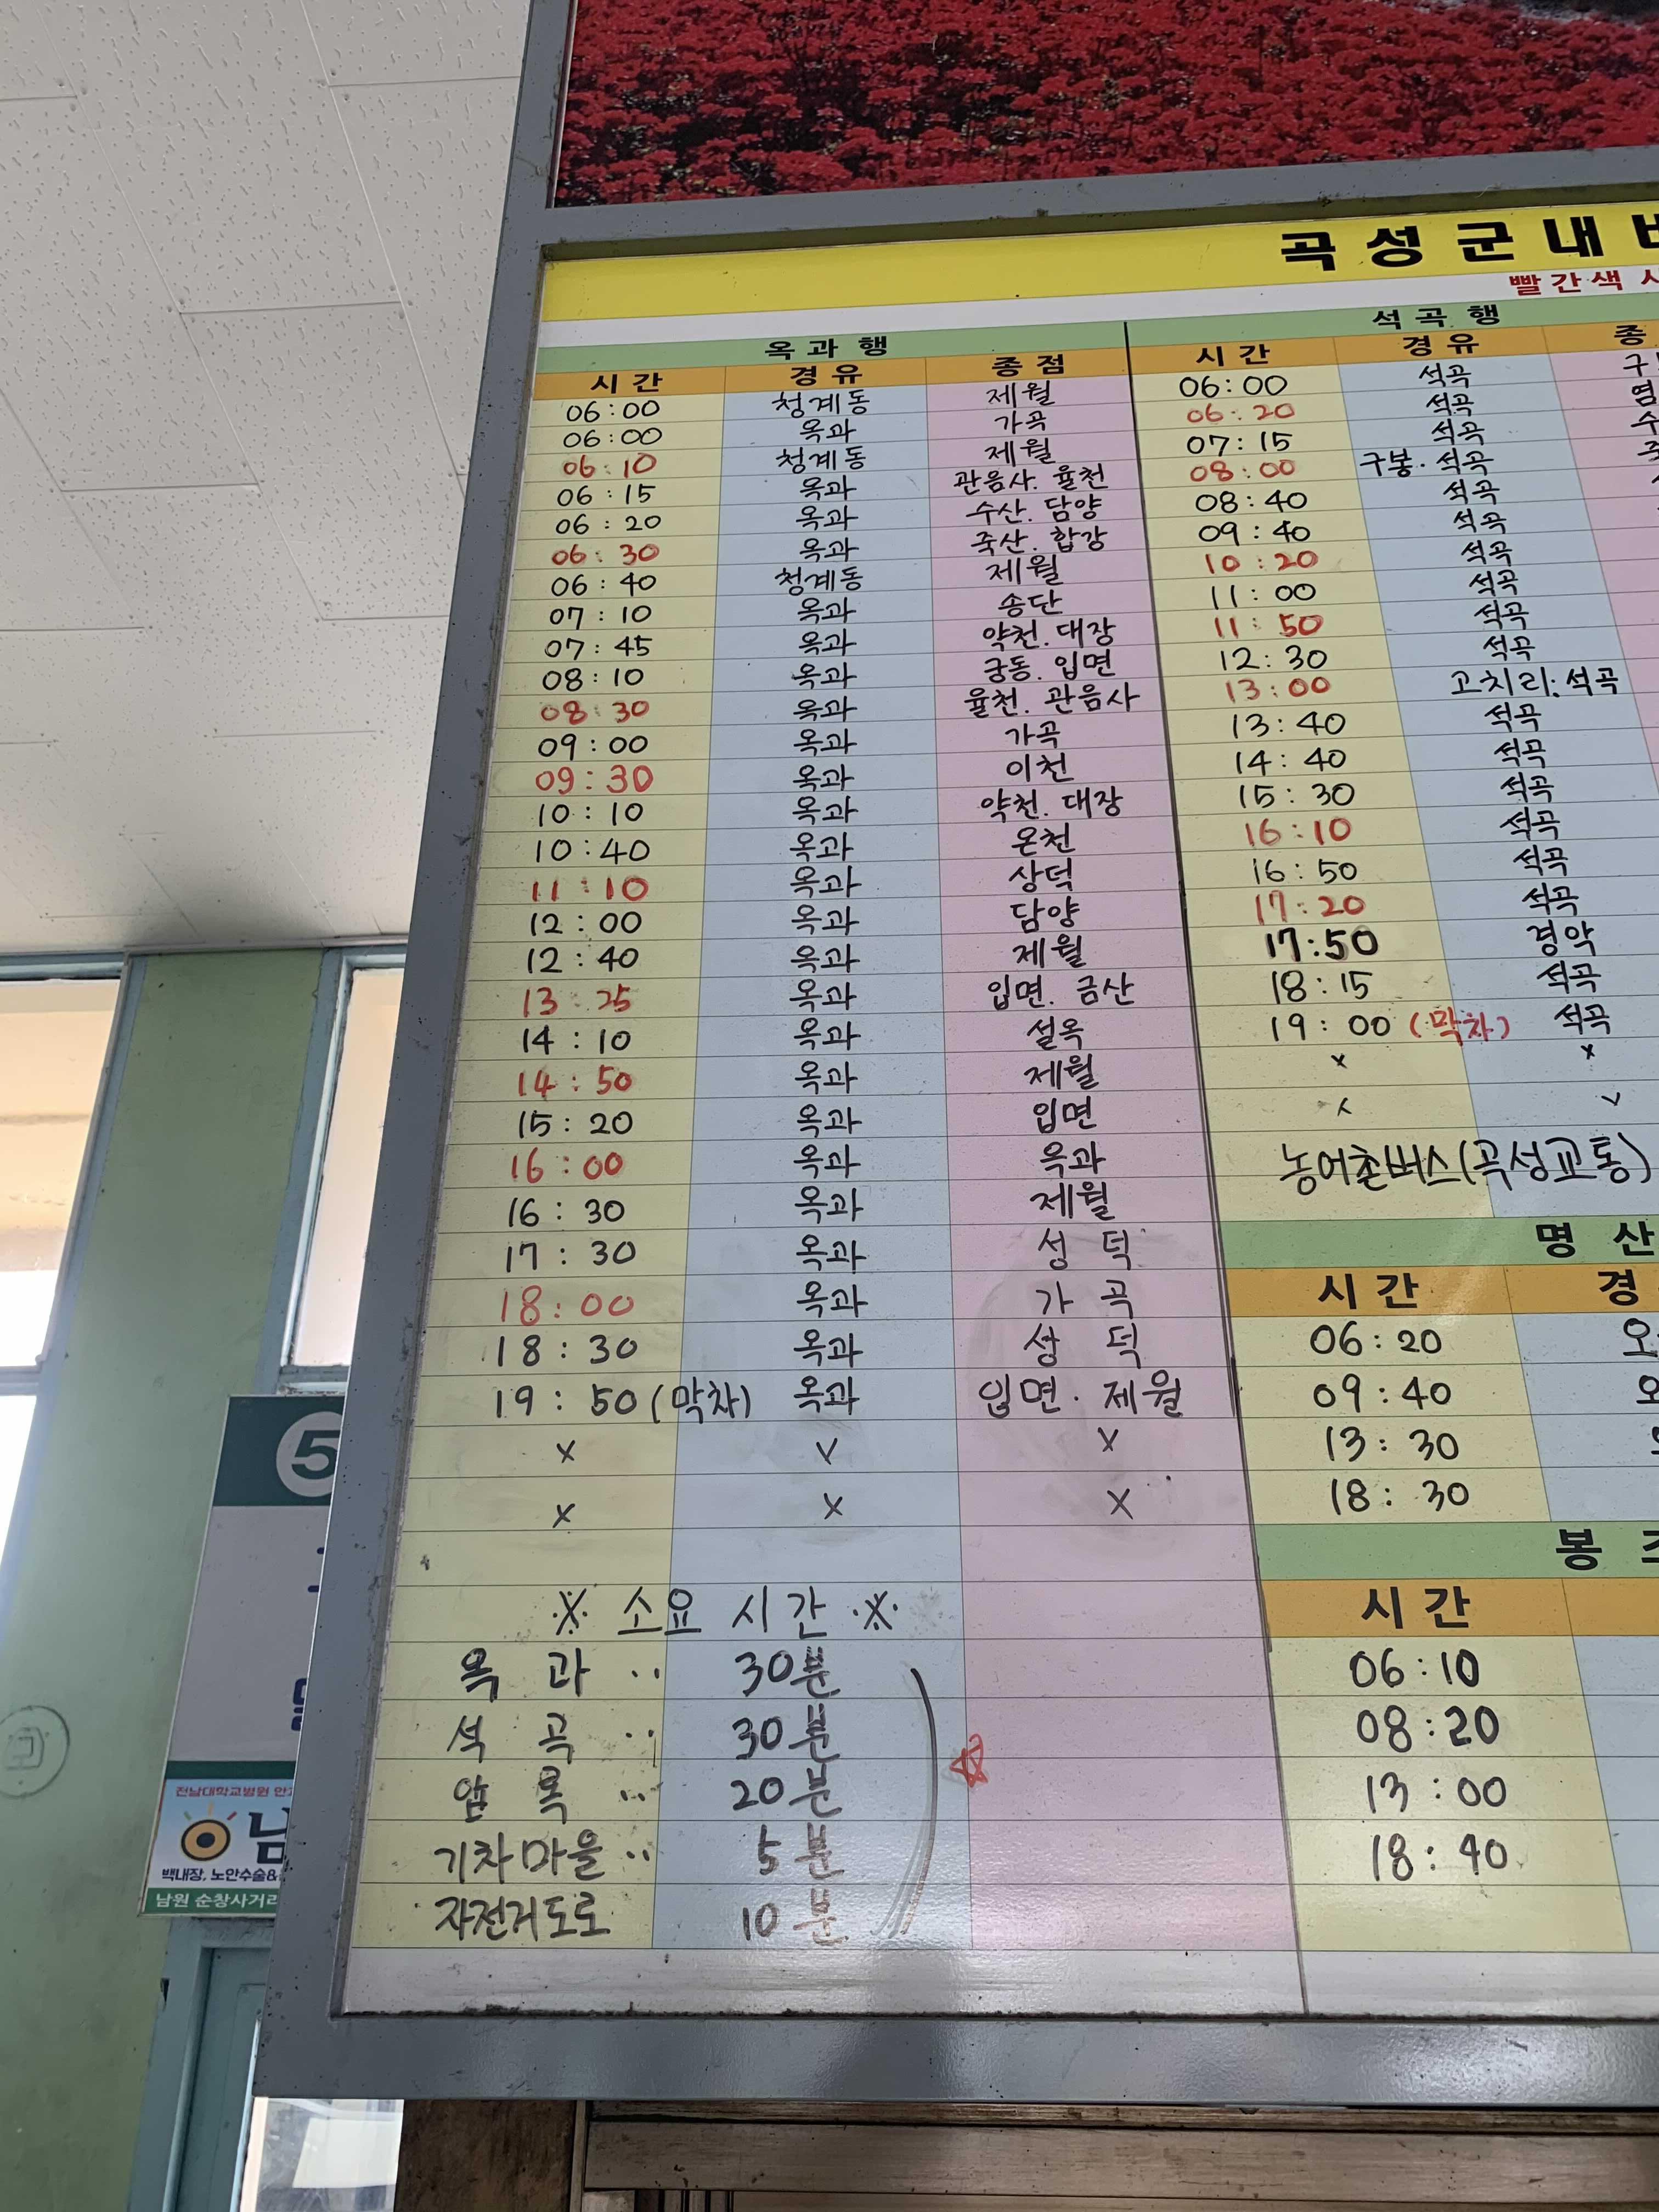 곡성군내
빨간색
옥과행
시간 경유 종점
06:00 청계동 제월
06:00 옥과 가곡
06:10 청계동 제월
06:15 옥과 관음사. 율천
06:20 옥과 수산. 담양
06:30 옥과 죽산. 합강
06:40 청계동 제월
07:10 옥과 송단
07:45 옥과 약천. 대장
08:10 옥과 궁동. 입면
08:30 옥과 율천. 관음사
09:00 옥과 가곡
09:30 옥과 이천
10:10 옥과 약천. 대장
10:40 옥과 온천
11:10 옥과 상덕
12:00 옥과 담양
12:40 옥과 제월
13:25 옥과 입면. 금산
14:10 옥과 설옥
14:50 옥과 제월
15:20 옥과 입면
16:00 옥과 옥과
16:30 옥과 제월
17:30 옥과 성덕
18:00 옥과 가곡
18:30 옥과 상덕
19:50 (막차) 옥과 입면. 제월
x x x
x x x
※ 소요 시간 ※
옥과 ·· 30분
석곡 ·· 30분
압록 ·· 20분
기차마을 ·· 5분
자전거도로 10분
석곡행
시간 경유 종
06:00 석곡
06:20 석곡
07:15 석곡
08:00 구봉. 석곡
08:40 석곡
09:40 석곡
10:20 석곡
11:00 석곡
11:50 석곡
12:30 석곡
13:00 고치리. 석곡
13:40 석곡
14:40 석곡
15:30 석곡
16:10 석곡
16:50 석곡
17:20 석곡
17:50 경악
18:15 석곡
19:00 (막차) 석곡
x x
x x
농어촌버스(곡성교통)
명산
시간 경
06:20
09:40
13:30
18:30
봉
시간
06:10
08:20
13:00
18:40
5
전남대학교병원
백내장, 노안수술&
남원 순창사거리